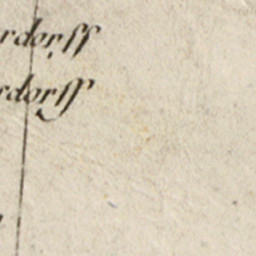 rdorff
rdorff